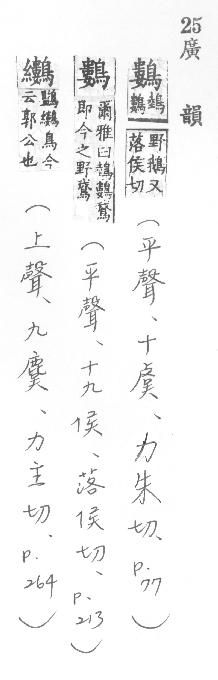 25廣韻
鷜 鵱鷜野鵝又落侯切 (平聲、十虞、力朱切、p.77)
鷜 爾雅曰鵱鷜鵞即今之野鵞 (平聲、十九侯、落侯切、p.213)
鳥今云郭公也 (上聲、九麌、力主切、p.264)